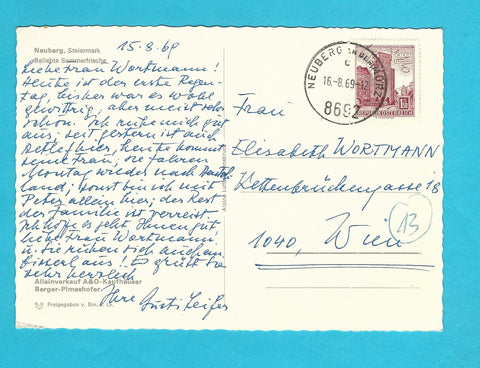 Neuberg, Steiermark
Beliebte Sommerfrische
15.8.69
Liebe Frau Wortmann!
Heute ist der erste Regen-
tag, bisher war es wohl
gewittrig, aber meist sehr
schön. Ich ruhe mich gut
aus, seit gestern ist auch
Detlef hier, heute kommt
seine Frau, sie fahren
Montag wieder nach
land, sonst bin ich mit
Peter allein hier, der Rest
der Familie ist verreist.
Ich hoffe es geht Ihnen gut
liebe Frau Wortmann
u. Sie ruhen sich auch ein
bisserl aus! Es grüßt Sie
sehr herzlich
Ihre Gusti
Alleinverkauf A&O-Kaufhäuser
Berger-Pimeshofer
Freigegeben v. Bm. f. Lv.
NEUBERG AN DER MÜRZ
c
16.-8.69-12
8692
REPUBLIK ÖSTERREICH
Frau
Elisabeth WORTMANN
Kettenbrückengasse 18
1040, Wien
13